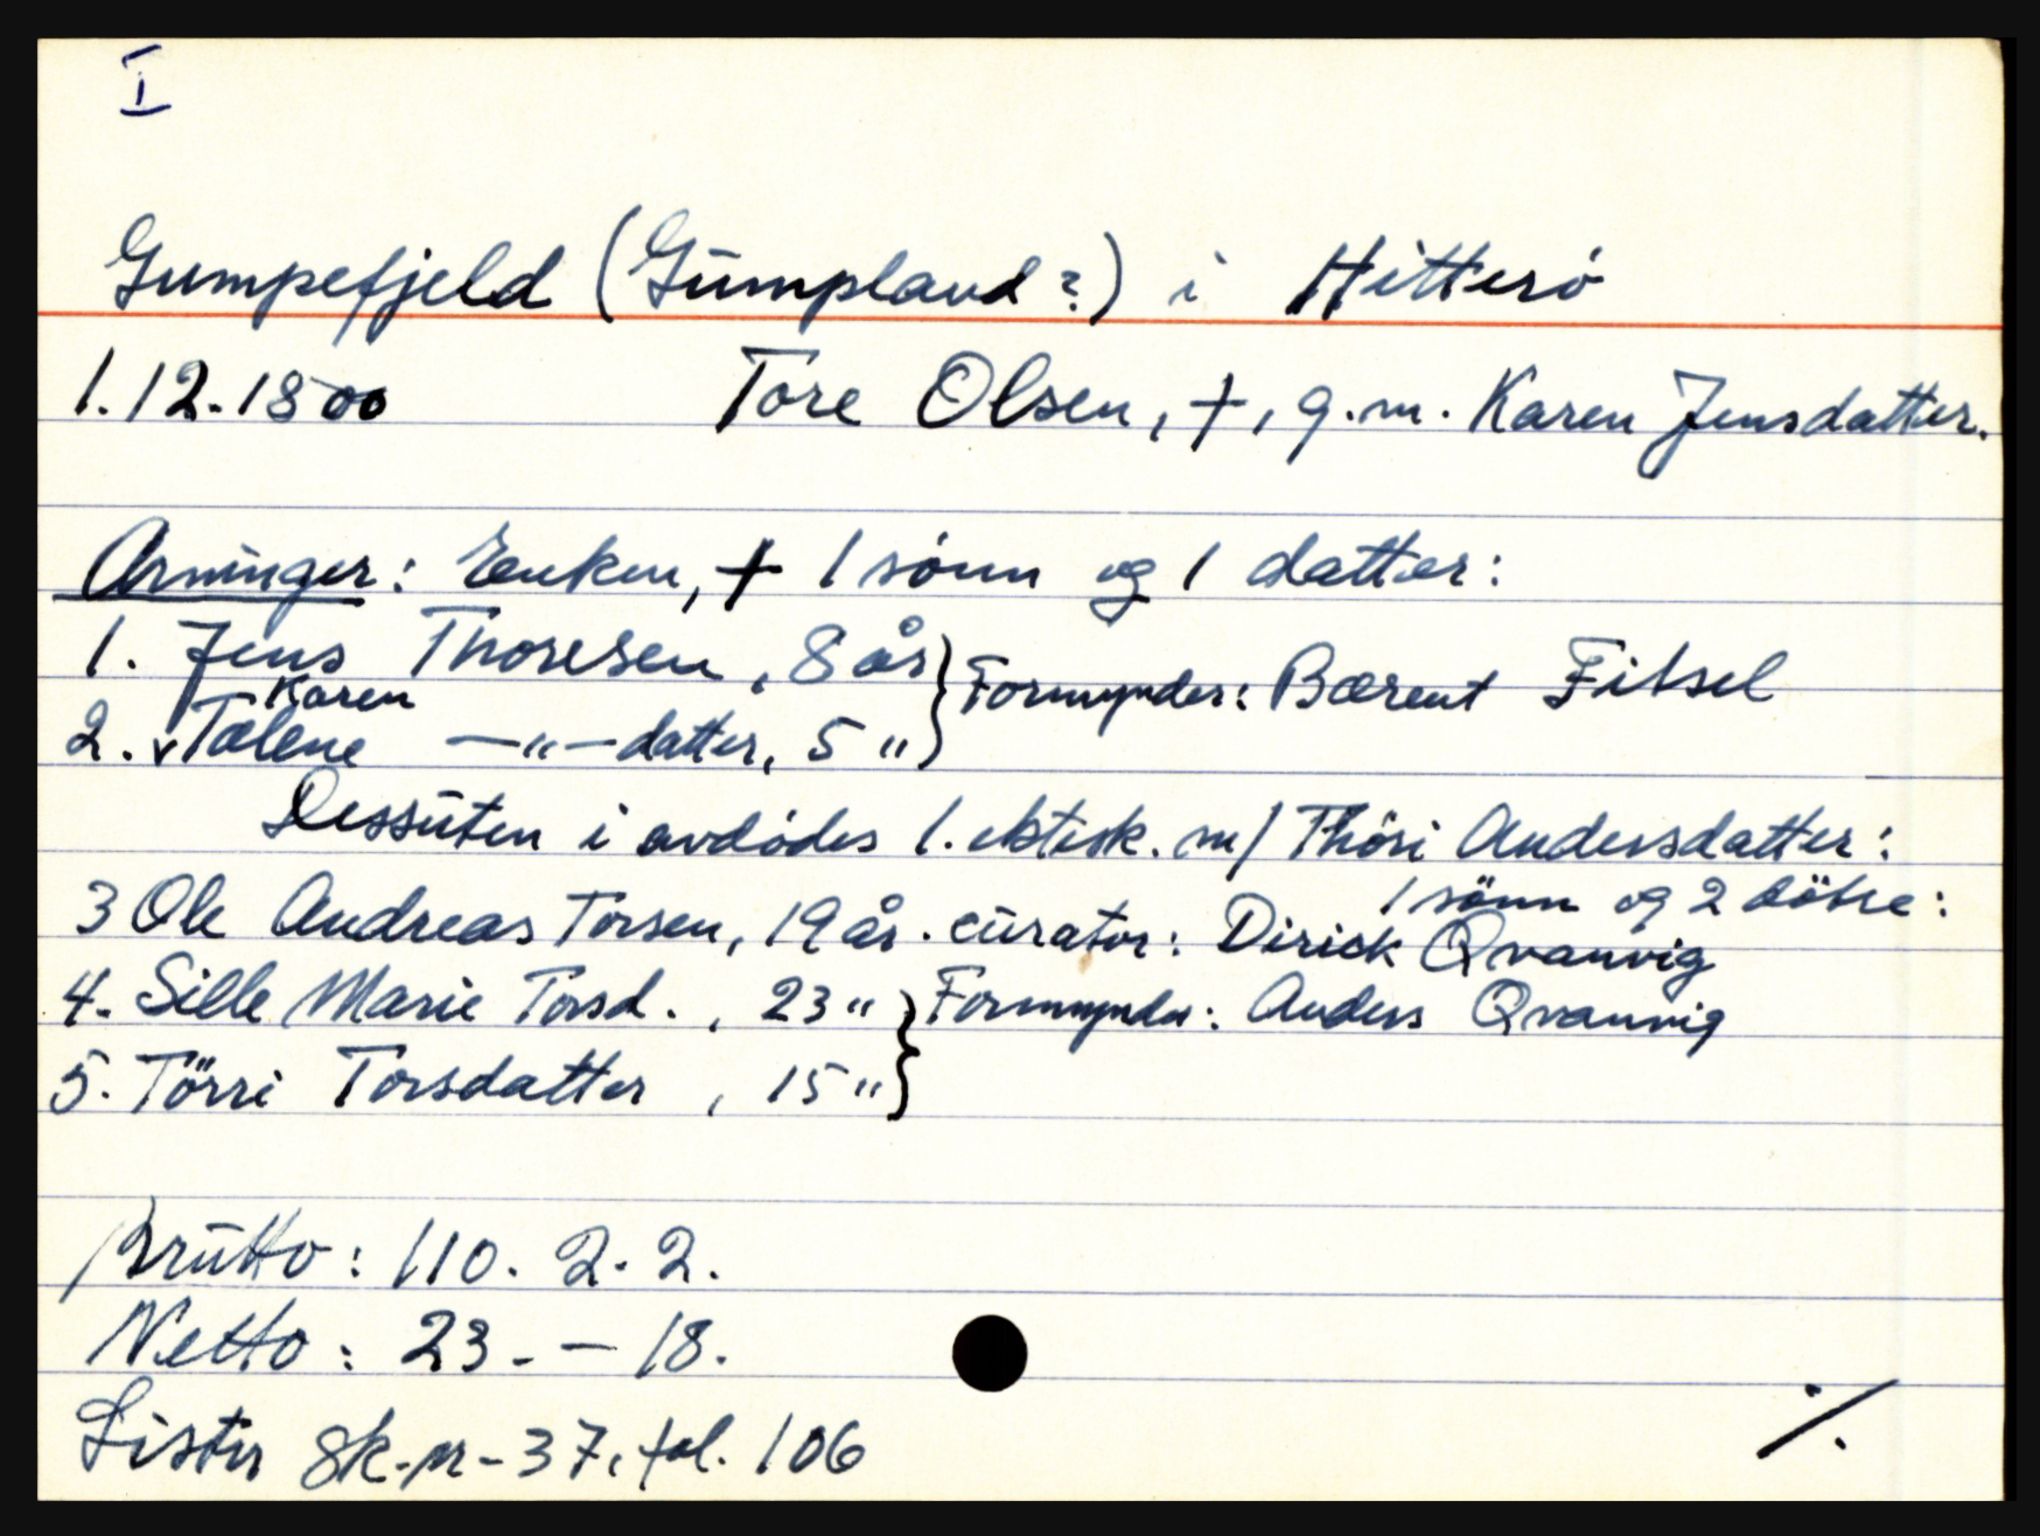 I
Gumpefjeld (Gumpland?) i Hitterö
1.12.1800 Tore Olsen, †, g.m. Karen Jensdatter.
Arvinger: Enken, + 1 sönn og 1 datter:
1. Jens Thoresen, 8 år } Formynder: Bærent Fibsel
Karen
2. v Tælene —"— datter, 5 " }
Dessuten i avdödes 1. ektesk. m/ Thöri Andersdatter:
1 sönn og 2 dötre:
3 Ole Andreas Torsen, 19 år. curator: Dirick Qvanvig
4. Sille Marie Torsd. , 23 " } Formynder: Anders Qvanvig
5. Törri Torsdatter , 15 " }
Brutto: 110. 2. 2.
Netto: 23. — 18.
Lister sk.pr. 37, fol. 106
./.